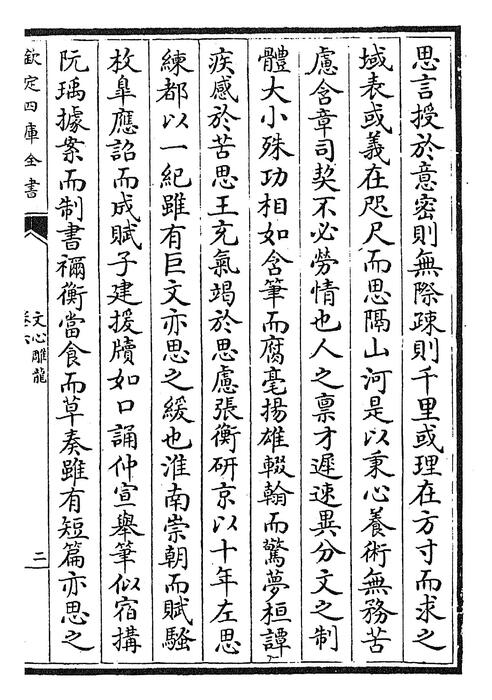 思言授於意密則無際疎則千里或理在方寸而求之
域表或義在咫尺而思隔山河是以秉心養術無務苦
慮含章司契不必勞情也人之禀才遲速異分文之制
體大小殊功相如含筆而腐毫揚雄輟翰而驚夢桓譚
疾感於苦思王充氣竭於思慮張衡研京以十年左思
練都以一紀雖有巨文亦思之緩也淮南崇朝而賦騷
枚臯應詔而成賦子建援牘如口誦仲宣舉筆似宿搆
阮瑀據案而制書禰衡當食而草奏雖有短篇亦思之
欽定四庫全書
文心雕龍
卷六
二